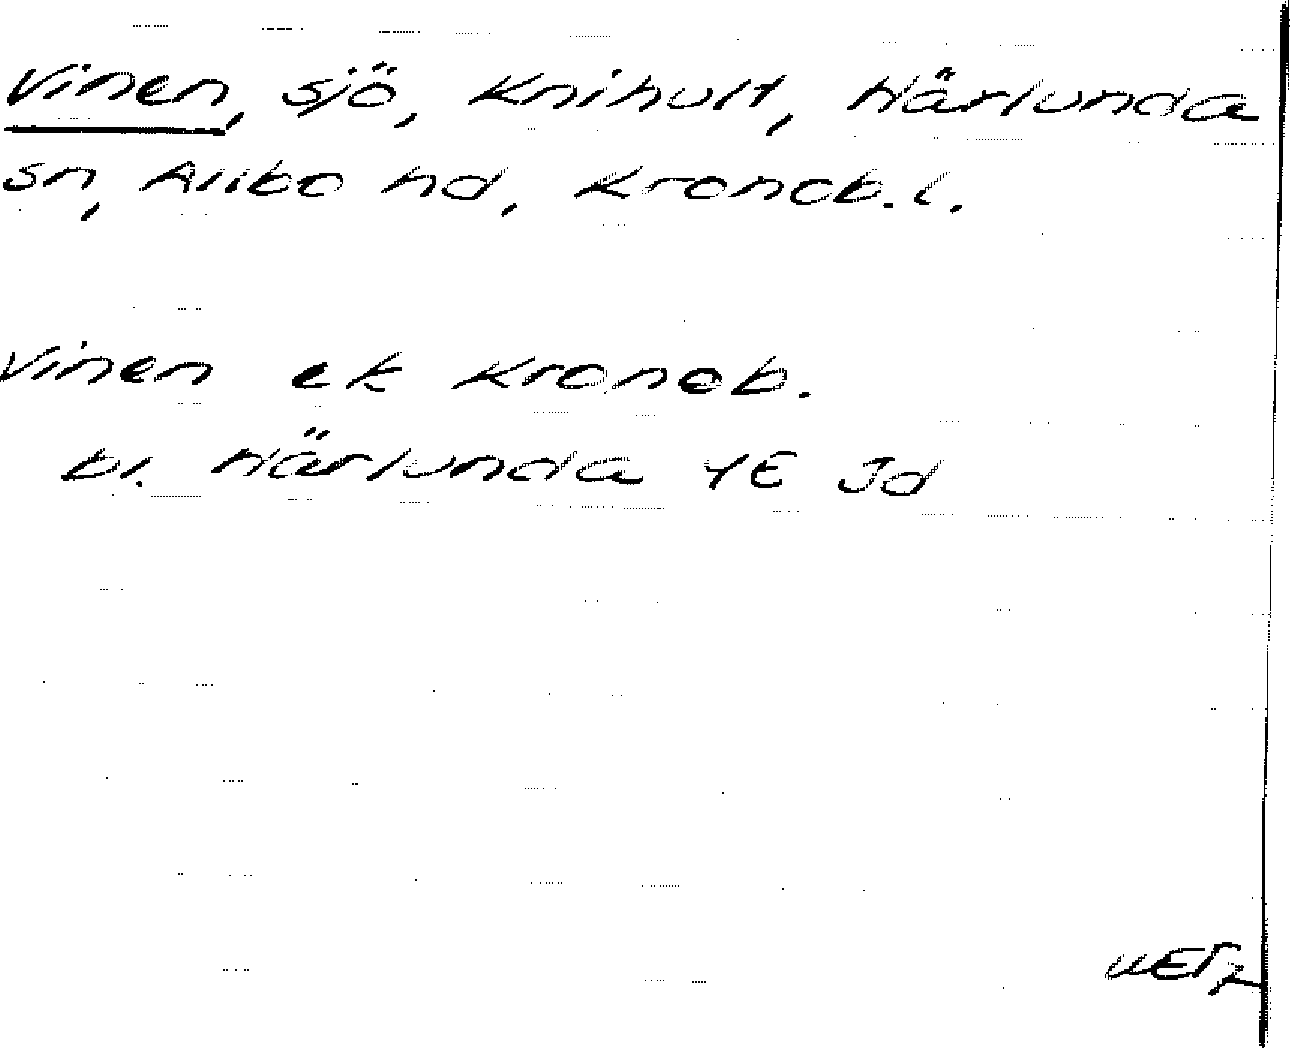 Vinen, sjö, Knihult, Härlunda
sn, Allbo hd, Kronob. l.
Vinen ek Kronob.
bl. Härlunda 4E Jd